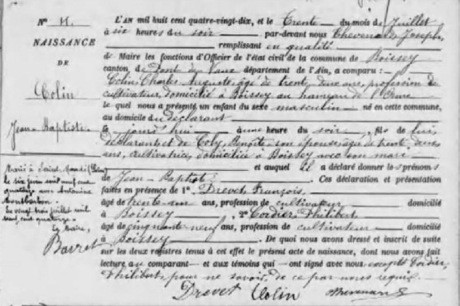 N° 11.
NAISSANCE
DE
Colin
Jean-Baptiste
L'AN mil huit cent quatre-vingt-dix, et le trente du mois de Juillet
à six heures du soir, par-devant nous Chevenard Joseph,
remplissant en qualité
de Maire les fonctions d'Officier de l'état civil de la commune de Boissey
canton de Pont de Vaux, département de l'Ain, a comparu:
Colin Charles âgé de trente deux ans, profession de
cultivateur domicilié à Boissey au hameau de
le quel nous a présenté un enfant du sexe masculin né en cette commune,
au domicile du déclarant
le jourd'hui à une heure du soir, fils de lui
déclarant et de son épouse, âgée de trente deux
ans, cultivatrice, domiciliée à Boissey avec son mari
et auquel il a déclaré donner les prénoms
de Jean-Baptiste. Ces déclaration et présentation
faites en présence de 1° Drevet François,
âgé trente six ans, profession de cultivateur domicilié
à Boissey, 2° Cordier Philibert
âgé cinquante neuf ans, profession de cultivateur domicilié
à Boissey. De quoi nous avons dressé et inscrit de suite
sur les deux registres tenus à cet effet le présent acte de naissance, dont nous avons fait
lecture au comparant et aux témoins qui ont signé avec nous excepté Cordier
Philibert pour ne savoir, de ce par nous requis.
Drevet Colin
Marié à
le six juin mil neuf cent
quatorze avec
Le vingt sept juillet mil
neuf cent quatorze
Le Maire,